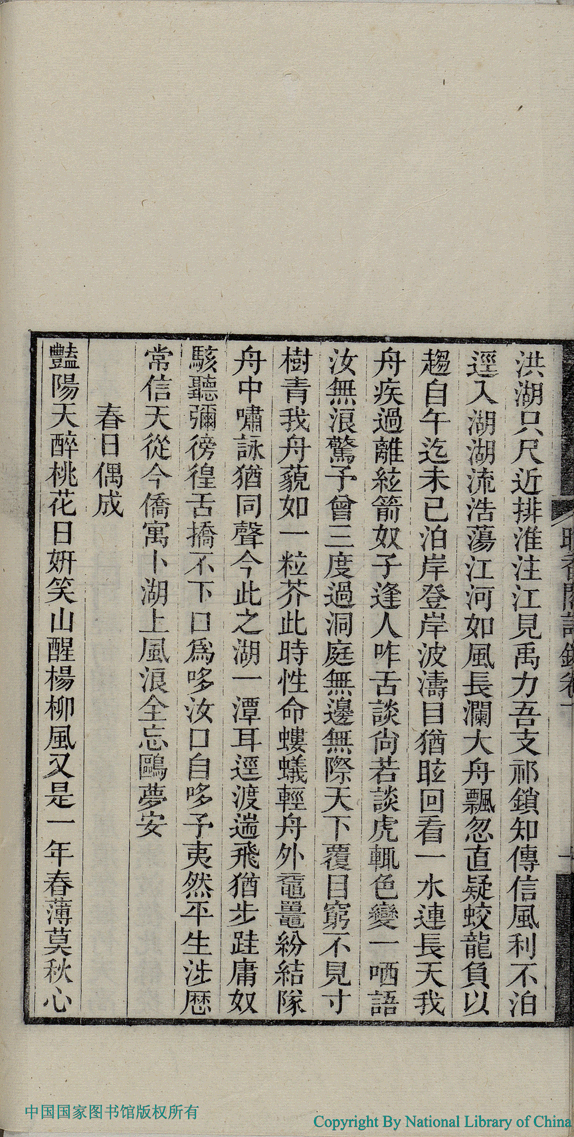 洪湖只尺近排淮注江見禹力吾支祁鎖知傳信風利不泊
逕入湖湖流浩蕩江河如風長瀾大舟飄忽直疑蛟龍負以
趨自午迄未已泊岸登岸波濤目猶眩回看一水連長天我
舟疾過離絃箭奴子逢人咋舌談尙若談虎輒色變一哂語
汝無浪驚予曾三度過洞庭無邊無際天下覆目窮不見寸
樹青我舟藐如一粒芥此時性命螻蟻輕舟外黿鼉紛結隊
舟中嘯詠猶同聲今此之湖一潭耳逕渡遄飛猶步跬庸奴
駭聽彌徬徨舌撟不下口爲哆汝口自哆予夷然平生涉歷
常信天從今僑寓卜湖上風浪全忘鷗夢安
春日偶成
豔陽天醉桃花日姸笑山醒楊柳風又是一年春薄莫秋心
中国国家图书馆版权所有
Copyright By National Library of China